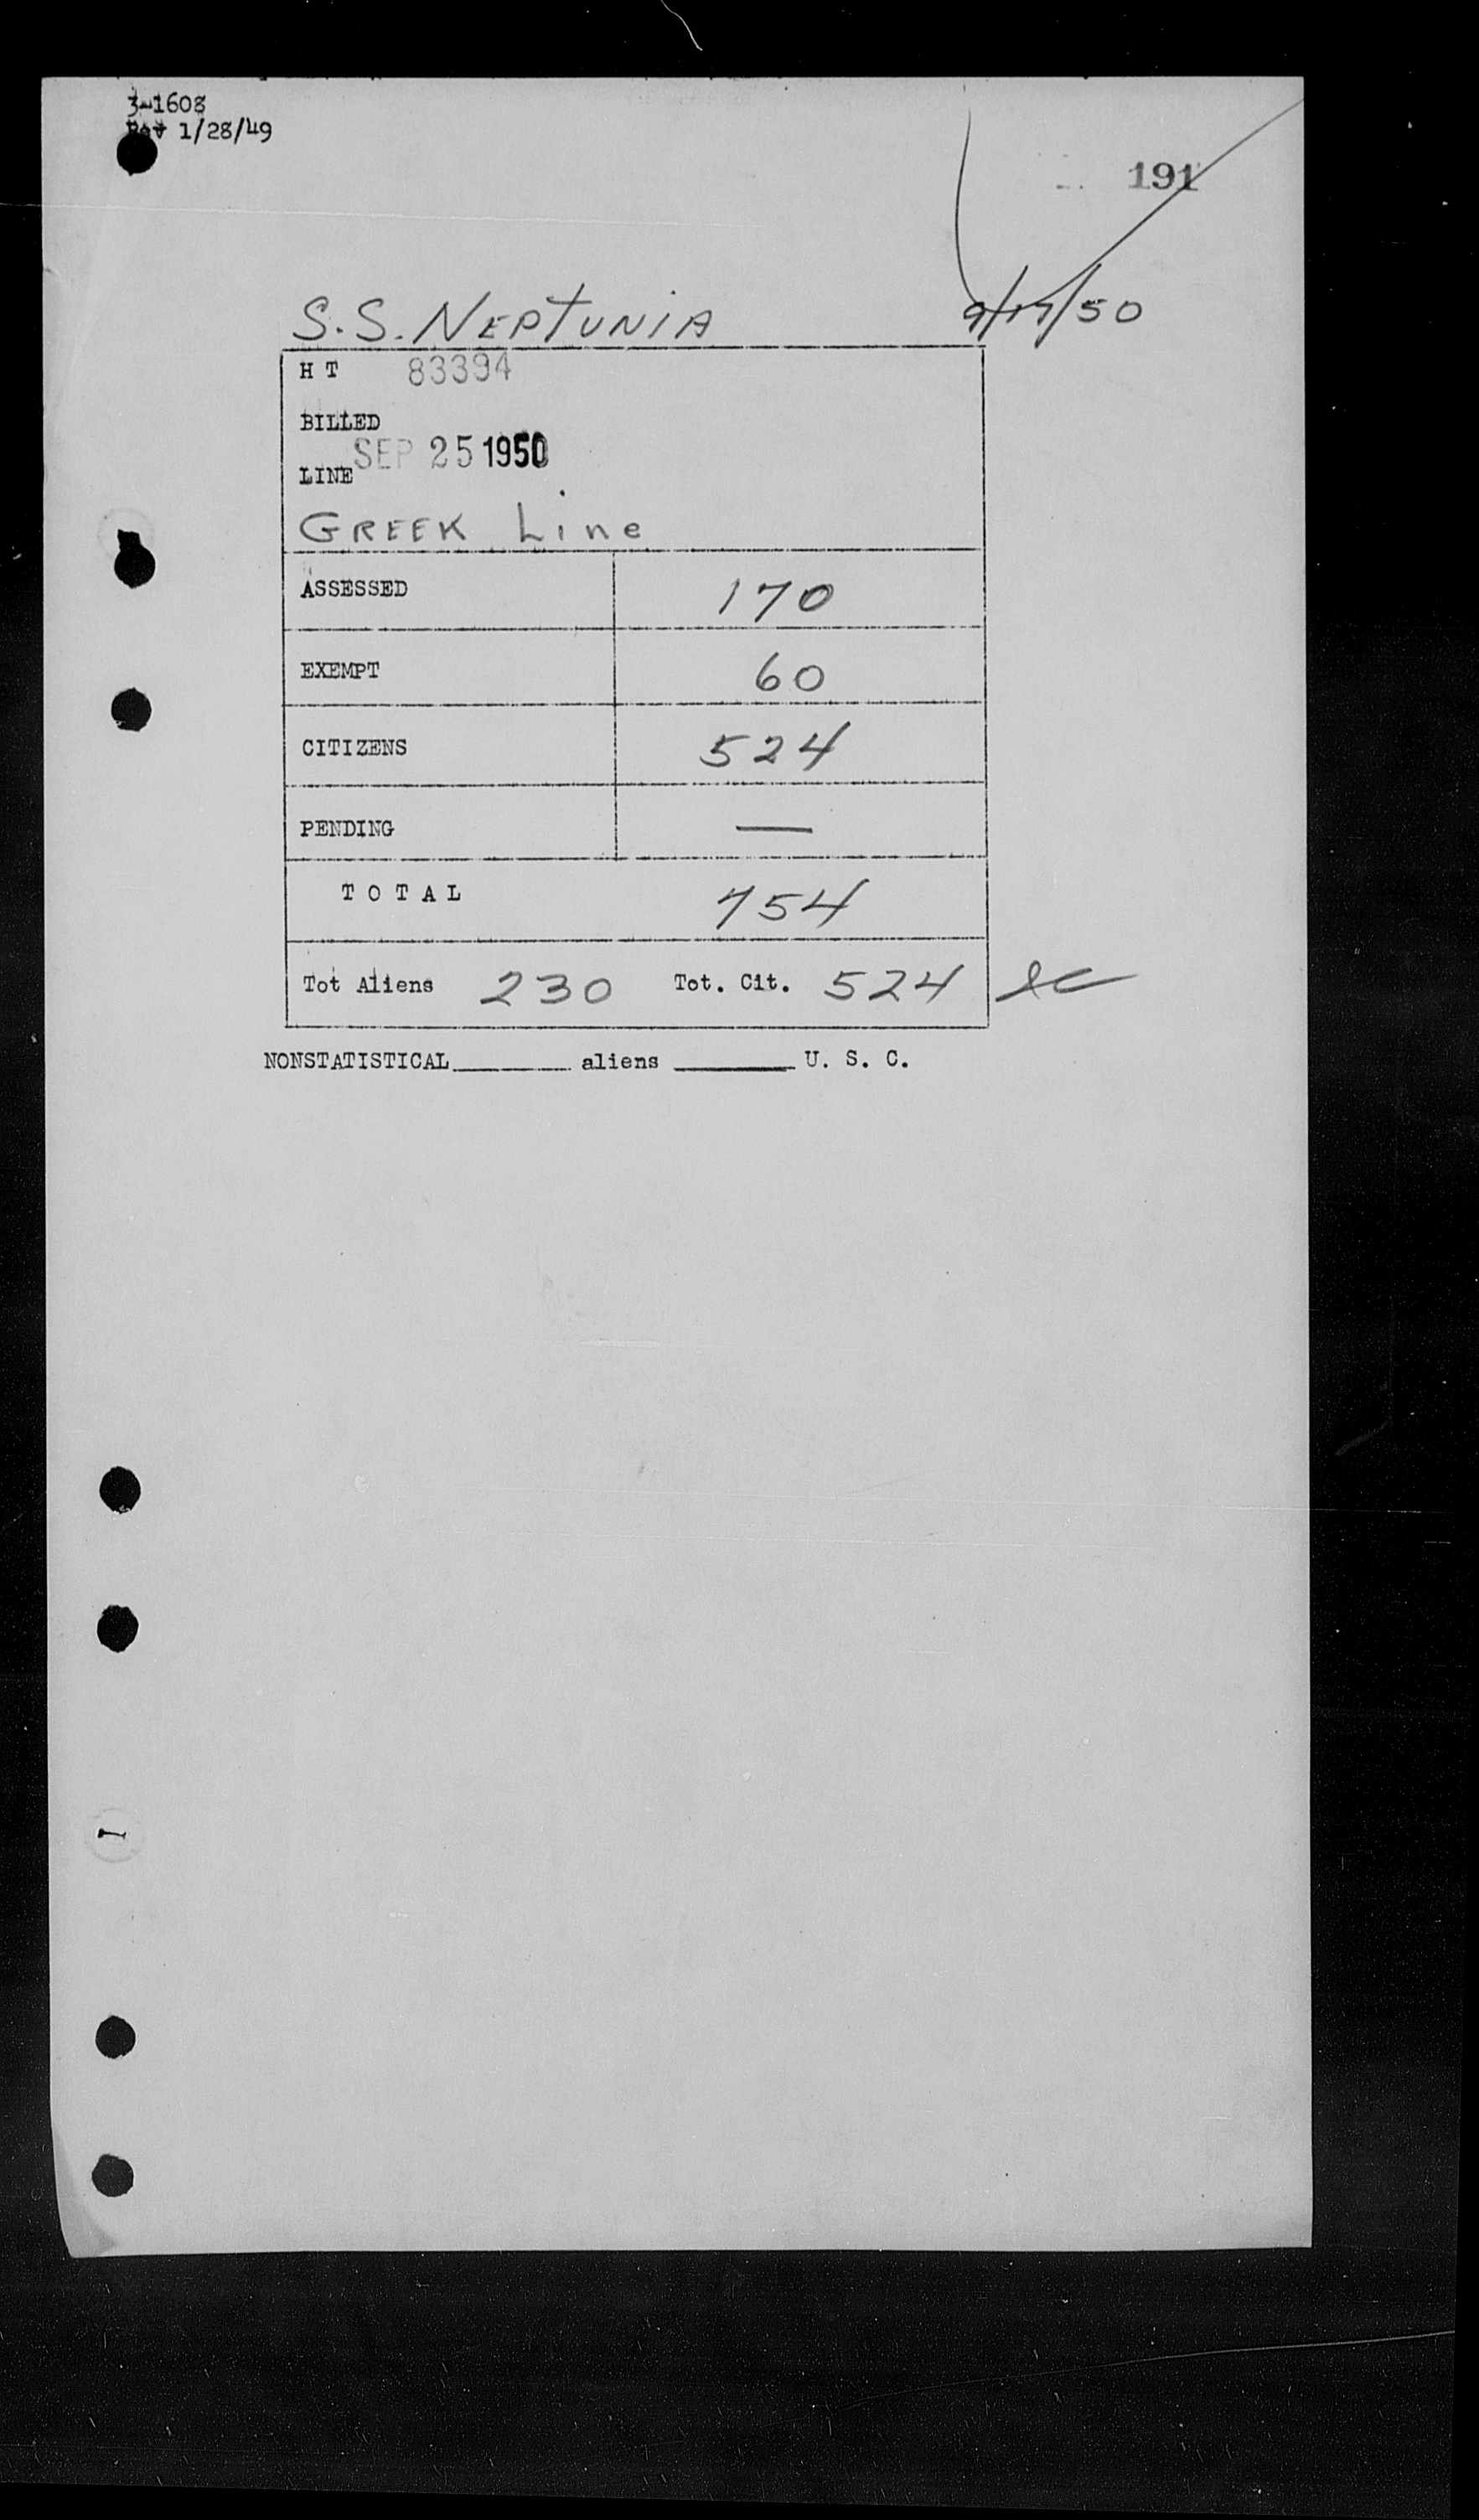 3-1608
Rev 1/28/49
191
S.S. NEPTUNIA 9/17/50
H T 83394
BILLED
SEP 25 1950
LINE
GREEK Line
ASSESSED 170
EXEMPT 60
CITIZENS 524
PENDING —
TOTAL 754
Tot Aliens 230 Tot. Cit. 524
NONSTATISTICAL_______ aliens _______ U. S. C.